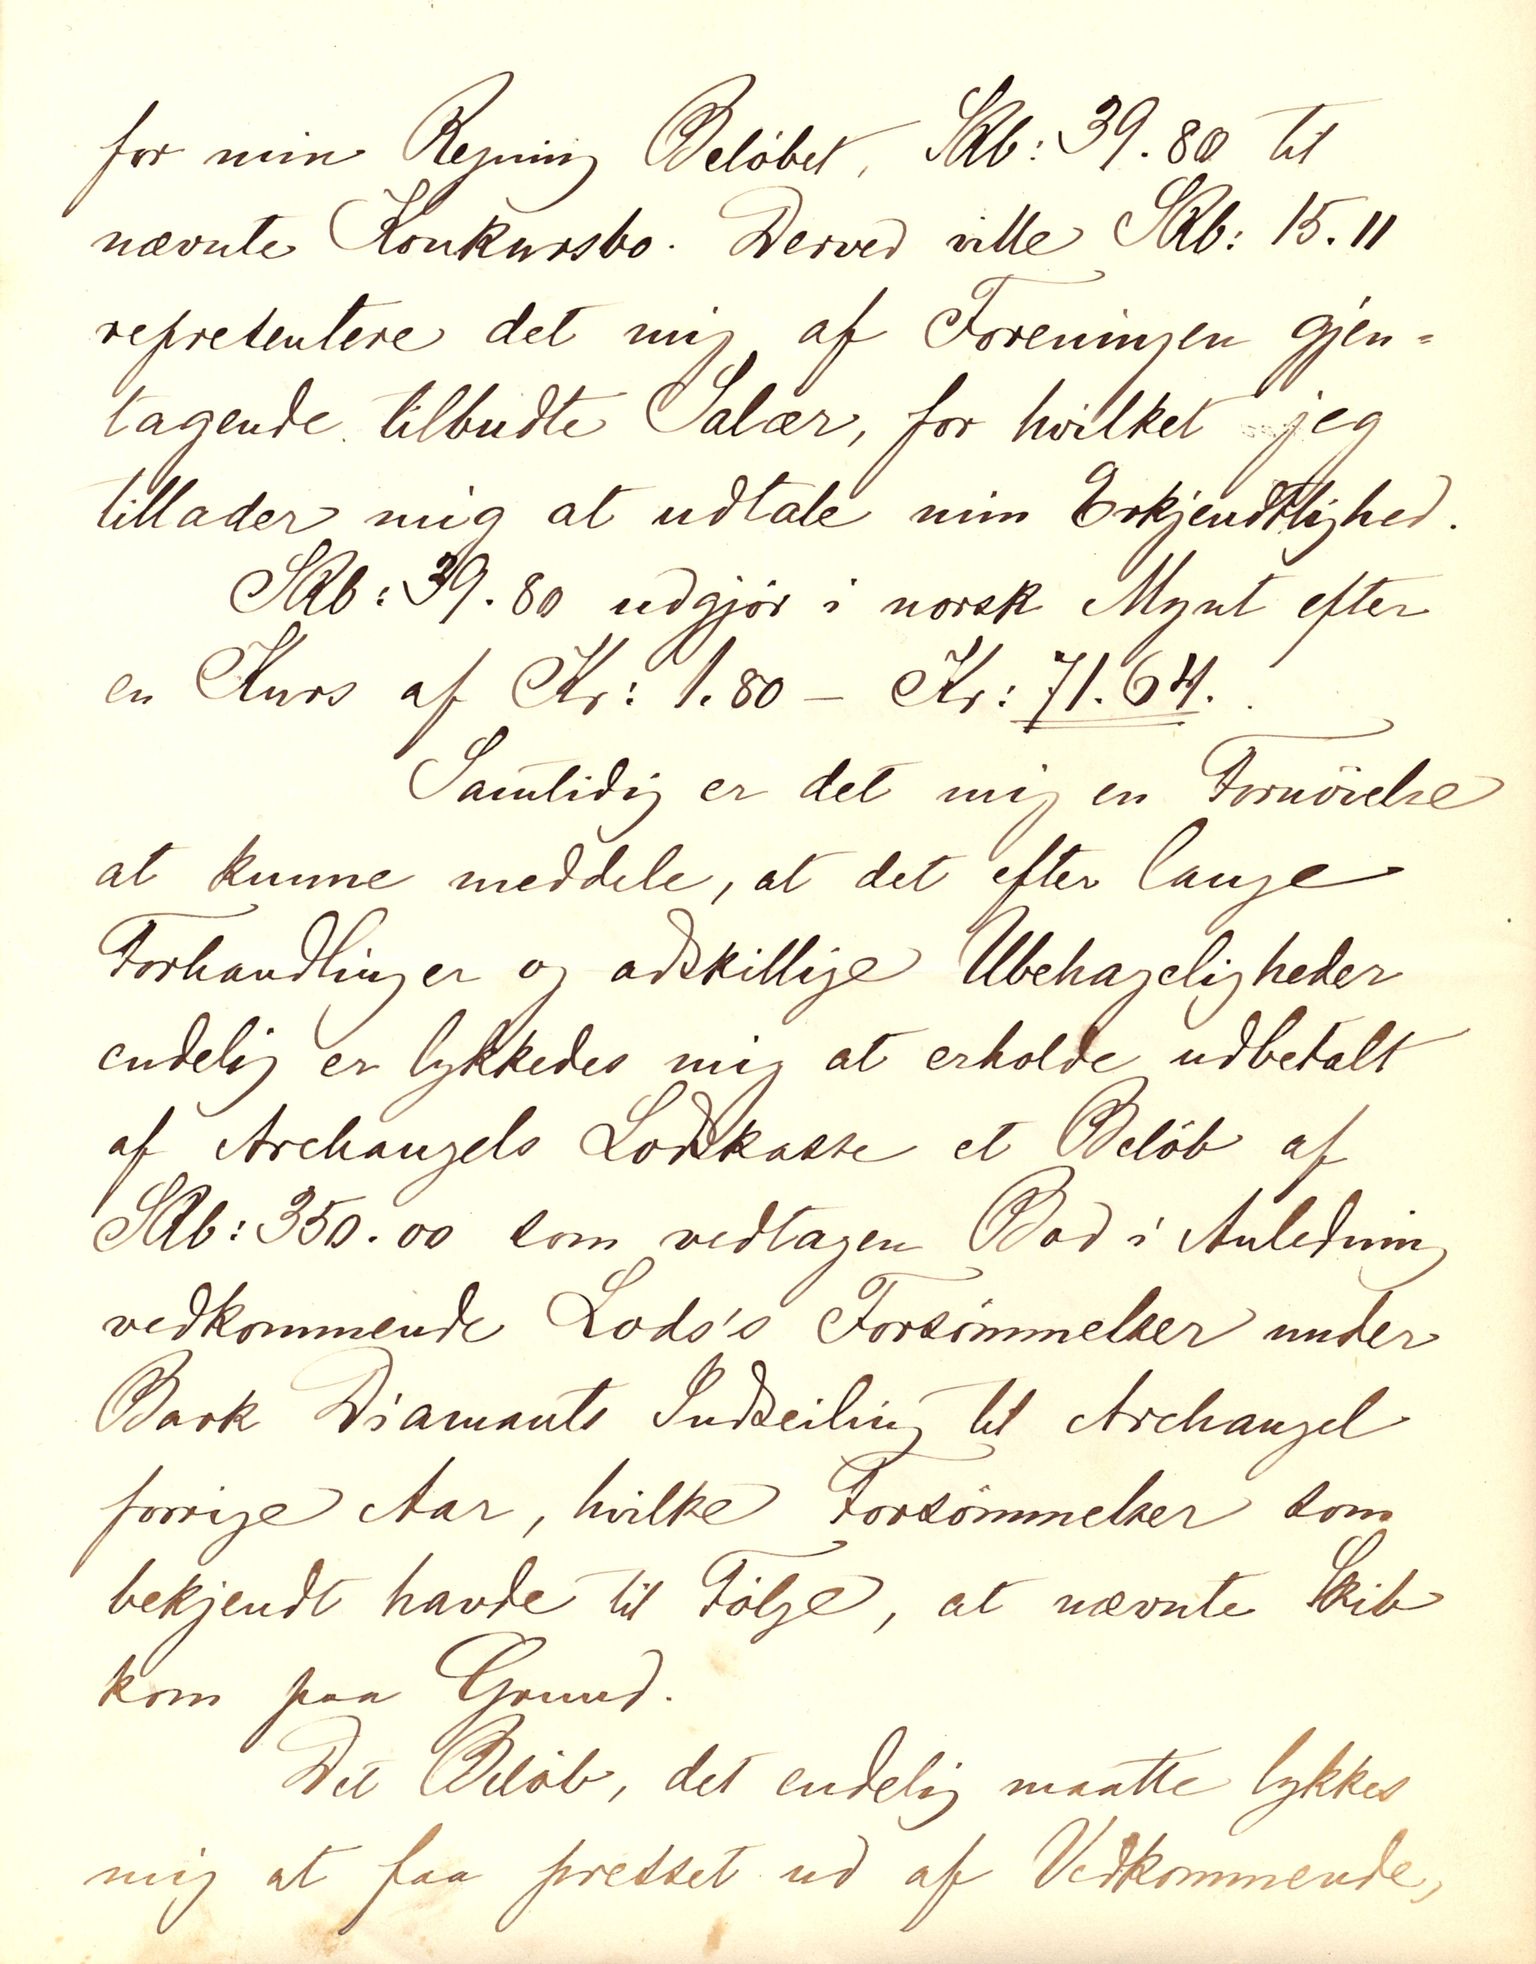 for min Regning Beløbet, SRb: 39.80 til
nævnte Konkursbo. Derved ville SRb: 15.11
representere det mig af Foreningen gjen=
tagende tilbudte Salær, for hvilket jeg
tillader mig at udtale min Erkjendtlighed.
SRb: 39.80 udgjør i norsk Mynt efter
en Kurs af Kr: 1.80 — Kr: 71.64.
Samtidig er det mig en Fornöielse
at kunne meddele, at det efter lange
Forhandlinger og adskillige Ubehageligheder
endelig er lykkedes mig at erholde udbetalt
af Archangels Lodskasse et Beløb af
SRb: 350.00 som vedtagen Bod i Anledning
vedkommende Lods's Forsömmelser under
Bark Diamants Indseiling til Archangel
forrige Aar, hvilke Forsömmelser som
bekjendt havde til Følge, at nævnte Skib
kom paa Grund.
Det Beløb, det endelig maatte lykkes
mig at faa presset ud af Vedkommende,